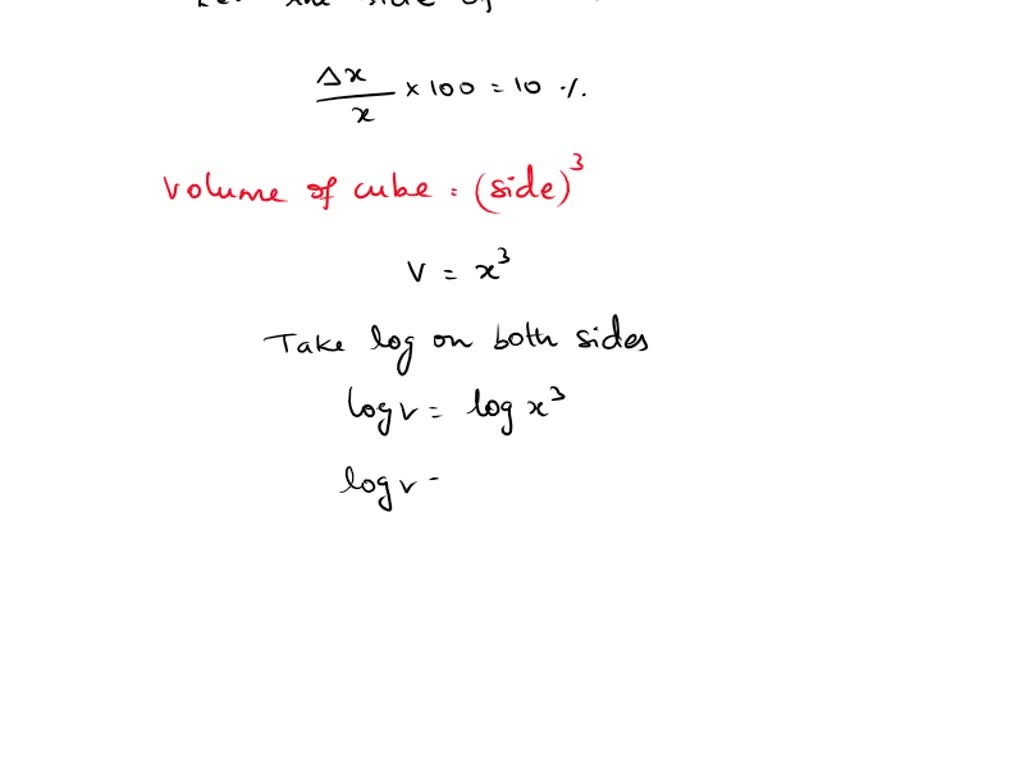 the side of
Δx/x × 100 = 10 %.
Volume of cube = (side)³
V = x³
Take log on both sides
log v = log x³
log v -